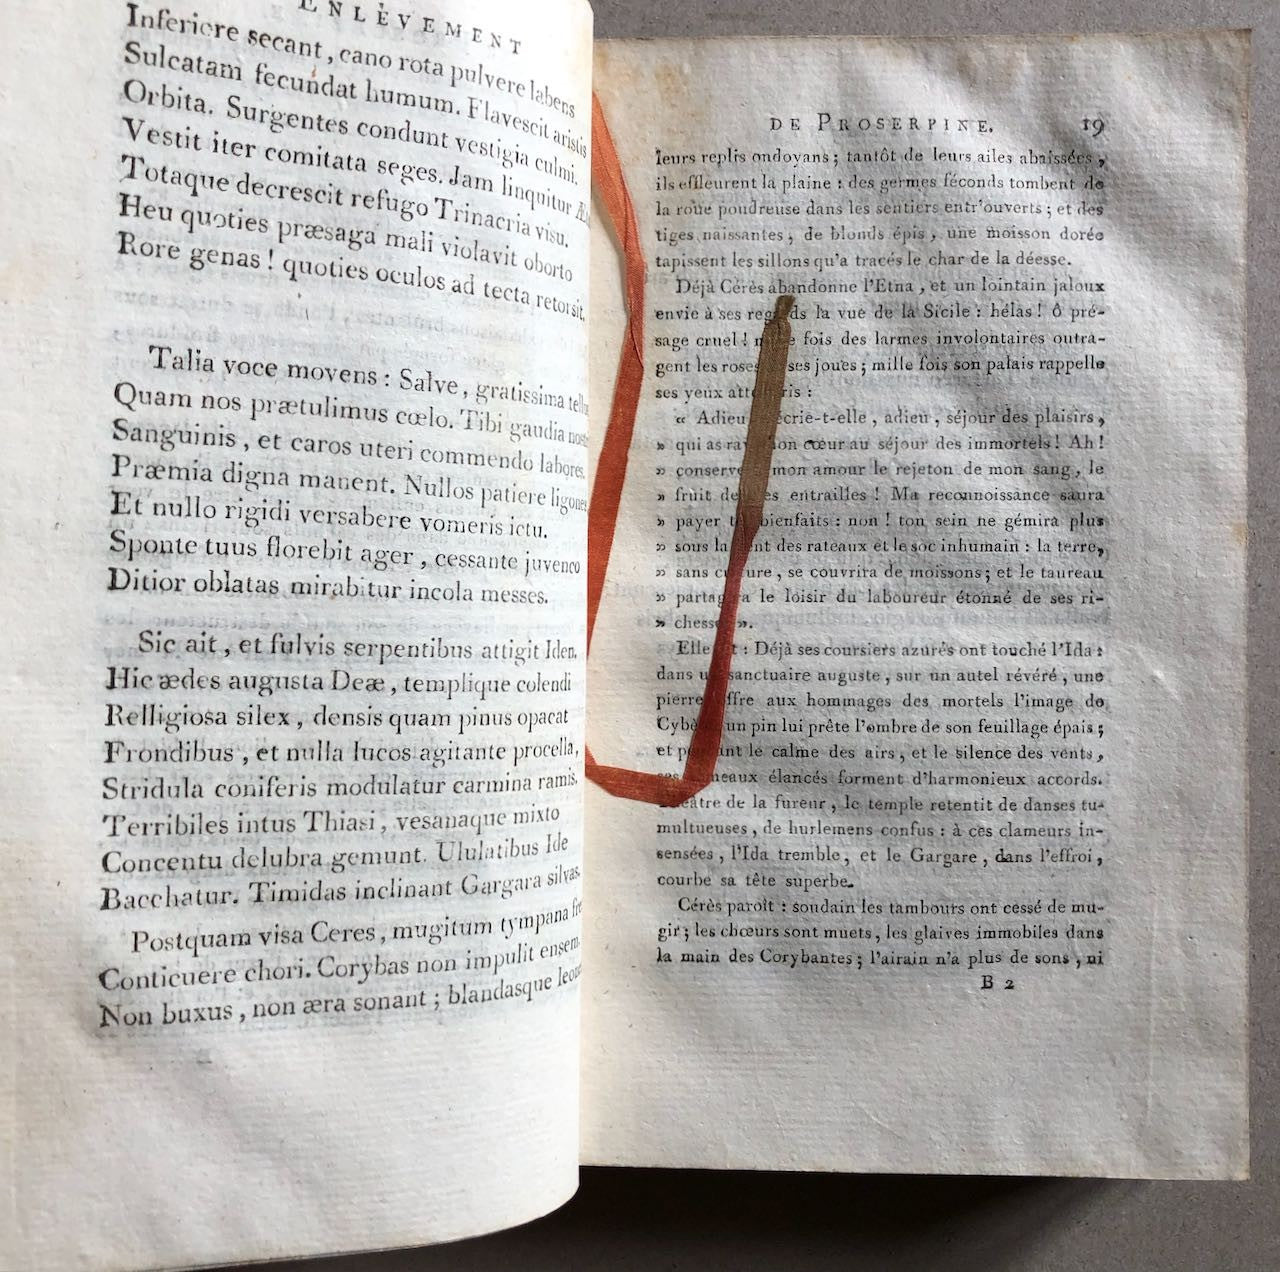 ENLÈVEMENT
Inferiore secant, cano rota pulvere labens
Sulcatam fecundat humum. Flavescit aristis
Orbita. Surgentes condunt vestigia culmi.
Vestit iter comitata seges. Jam linquitur
Totaque decrescit refugo Trinacria visu.
Heu quoties præsaga mali violavit oborto
Rore genas! quoties oculos ad tecta retorsit,
Talia voce movens: Salve, gratissima
Quam nos prætulimus cœlo. Tibi gaudia
Sanguinis, et caros uteri commendo labores.
Præmia digna manent. Nullos patiere ligones
Et nullo rigidi versabere vomeris ictu.
Sponte tuus florebit ager, cessante juvenco
Ditior oblatas mirabitur incola messes.
Sic ait, et fulvis serpentibus attigit Iden.
Hic ædes augusta Deæ, templique colendi
Relligiosa silex, densis quam pinus opacat
Frondibus, et nulla lucos agitante procella,
Stridula coniferis modulatur carmina ramis.
Terribiles intus Thiasi, vesanaque mixto
Concentu delubra gemunt. Ululatibus Ide
Bacchatur. Timidas inclinant Gargara silvas.
Postquam visa Ceres, mugitum tympana
Conticuere chori. Corybas non impulit ensem.
Non buxus, non æra sonant; blandasque
DE PROSERPINE. 19
leurs replis ondoyans; tantôt de leurs ailes abaissées,
ils effleurent la plaine : des germes féconds tombent de
la roue poudreuse dans les sentiers entr'ouverts; et des
tiges naissantes, de blonds épis, une moisson dorée
tapissent les sillons qu'a tracés le char de la déesse.
Déjà Cérès abandonne l'Etna, et un lointain jaloux
envie à ses regards la vue de la Sicile : hélas! Ô pré-
sage cruel! fois des larmes involontaires outra-
gent les roses ses joues; mille fois son palais rappelle
ses yeux :
« Adieu adieu, séjour des plaisirs,
» qui as cœur au séjour des immortels! Ah!
» mon amour le rejeton de mon sang, le
» fruit de entrailles! Ma reconnoissance saura
» payer bienfaits : non! ton sein ne gémira plus
» sous la des rateaux et le soc inhumain : la terre,
» sans , se couvrira de moissons; et le taureau
» le loisir du laboureur étonné de ses ri-
» ».
Elle : Déjà ses coursiers azurés ont touché l'Ida :
dans sanctuaire auguste, sur un autel révéré, une
pierre aux hommages des mortels l'image de
un pin lui prête l'ombre de son feuillage épais;
et le calme des airs, et le silence des vents,
élancés forment d'harmonieux accords.
Théâtre de la fureur, le temple retentit de danses tu-
multueuses, de hurlemens confus : à ces clameurs in-
sensées, l'Ida tremble, et le Gargare, dans l'effroi,
courbe sa tête superbe.
Cérès paroît : soudain les tambours ont cessé de mu-
gir; les chœurs sont muets, les glaives immobiles dans
la main des Corybantes; l'airain n'a plus de sons, ni
B 2